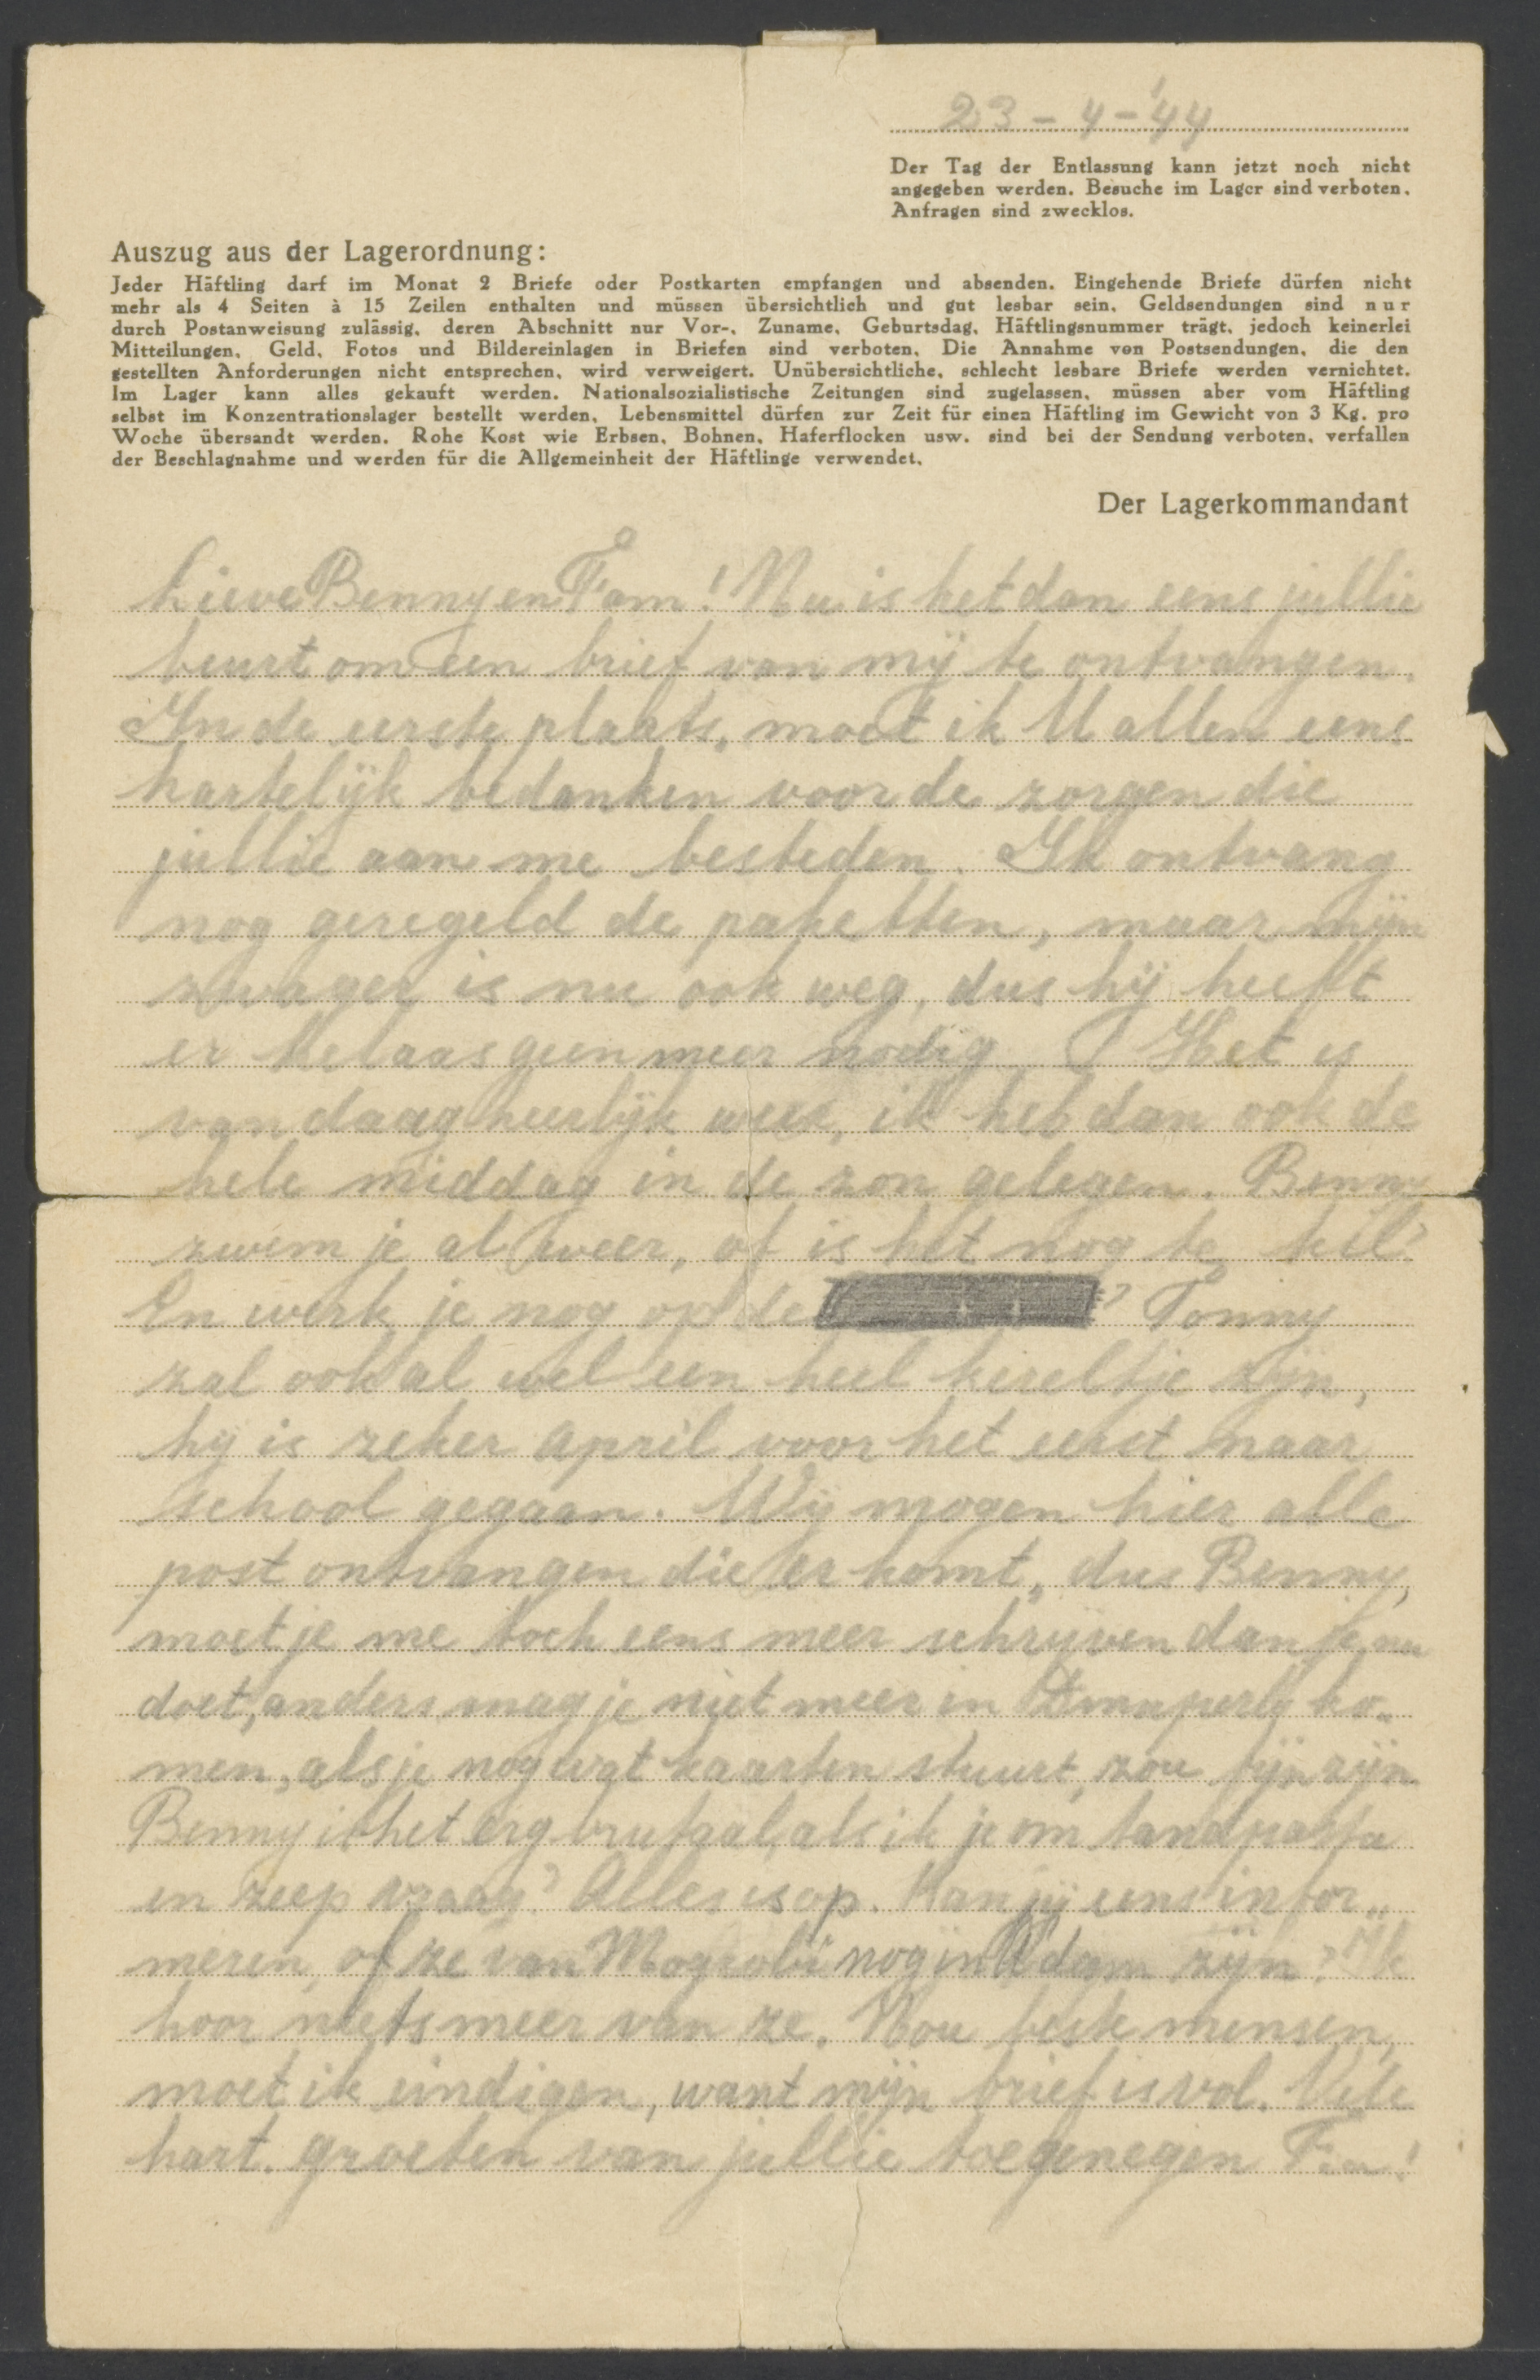 23-4-'44
Der Tag der Entlassung kann jetzt noch nicht
angegeben werden. Besuche im Lager sind verboten.
Anfragen sind zwecklos.
Auszug aus der Lagerordnung:
Jeder Häftling darf im Monat 2 Briefe oder Postkarten empfangen und absenden. Eingehende Briefe dürfen nicht
mehr als 4 Seiten à 15 Zeilen enthalten und müssen übersichtlich und gut lesbar sein. Geldsendungen sind nur
durch Postanweisung zulässig, deren Abschnitt nur Vor-, Zuname, Geburtsdag, Häftlingsnummer trägt, jedoch keinerlei
Mitteilungen. Geld, Fotos und Bildereinlagen in Briefen sind verboten. Die Annahme von Postsendungen, die den
gestellten Anforderungen nicht entsprechen, wird verweigert. Unübersichtliche, schlecht lesbare Briefe werden vernichtet.
Im Lager kann alles gekauft werden. Nationalsozialistische Zeitungen sind zugelassen, müssen aber vom Häftling
selbst im Konzentrationslager bestellt werden. Lebensmittel dürfen zur Zeit für einen Häftling im Gewicht von 3 Kg. pro
Woche übersandt werden. Rohe Kost wie Erbsen, Bohnen, Haferflocken usw. sind bei der Sendung verboten, verfallen
der Beschlagnahme und werden für die Allgemeinheit der Häftlinge verwendet.
Der Lagerkommandant
Lieve Benny en Fam! Nu is het dan eens jullie
beurt om een brief van mij te ontvangen.
In de eerste plaats, moet ik U allen eens
hartelijk bedanken voor de zorgen die
jullie aan me besteden. Ik ontvang
nog geregeld de paketten, maar mijn
zwager is nu ook weg, dus hij heeft
er helaas geen meer nodig. Het is
vandaag heerlijk weer, ik heb dan ook de
hele middag in de zon gelegen. Benny
zwem je al weer, of is het nog te kil?
En werk je nog op de ? Tonny
zal ook al wel een heel kereltje zijn,
hij is zeker April voor het eerst naar
school gegaan. Wij mogen hier alle
post ontvangen die er komt, dus Benny,
moet je me toch eens meer schrijven dan je nu
doet, anders mag je niet meer in ko-
men, als je nog wat kaarten stuurt, zou fijn zijn
Benny is het erg brutaal, als ik je om tandpasta
en zeep vraag? Alles is op. Kan jij eens infor-
meren, of ze van Mogrobi nog in A'dam zijn? Ik
hoor niets meer van ze. Nou beste mensen,
moet ik eindigen, want mijn brief is vol. Vele
hart. groeten van jullie toegenegen